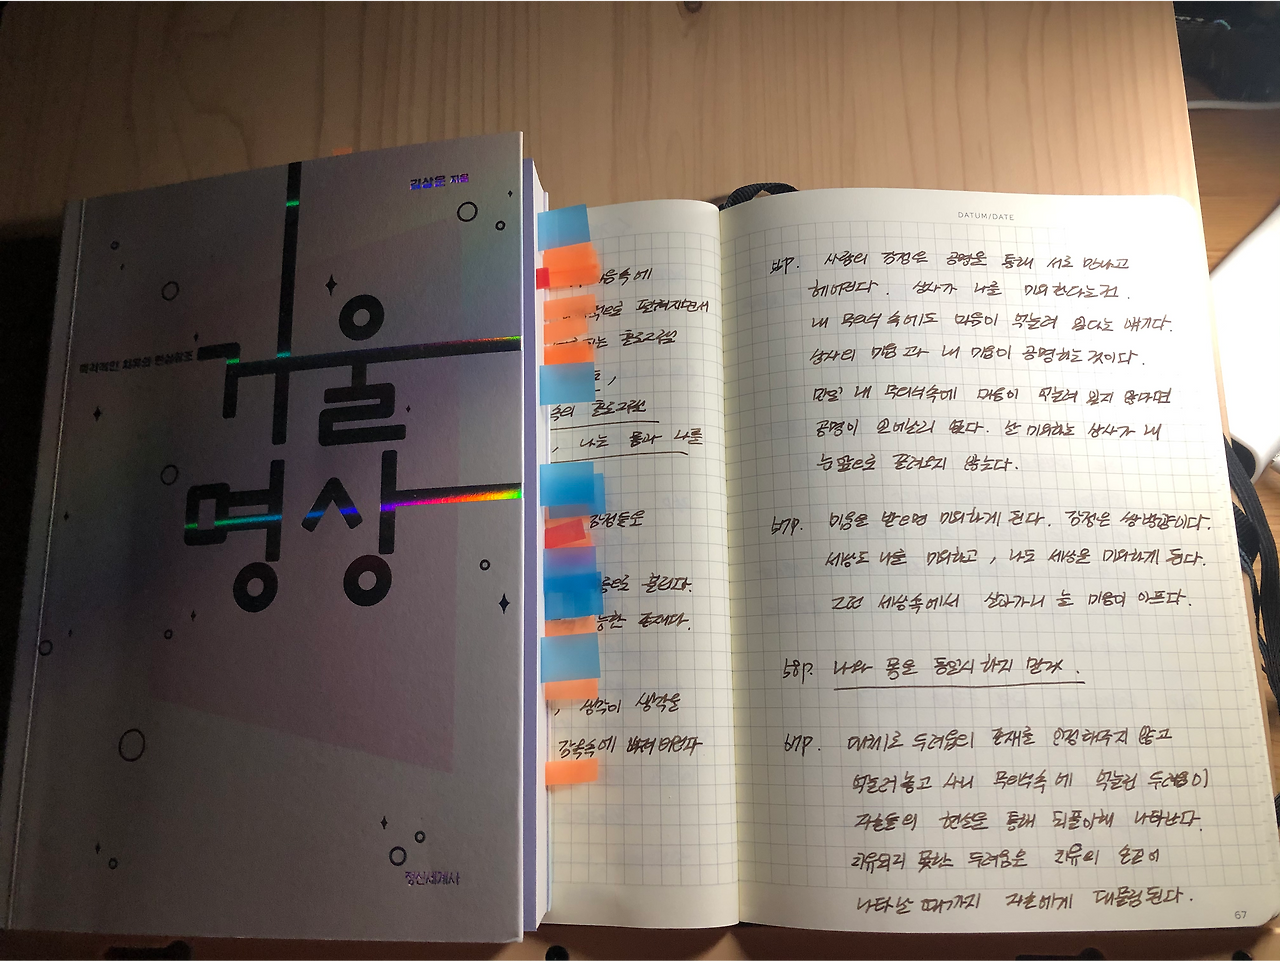 김상운 지음
거울
명상
정신세계사
음속에
펼쳐지면서
는 홀로그램
속의 홀로그램
, 나는 몸과 나를
감정들로
으로 흘리다.
능한 존재다.
, 생각이 생각을
감옥속에
DATUM/DATE
사람의 감정은 공명을 통해 서로 만나고
헤어진다. 상사가 나를 미워한다는건.
내 무의식 속에도 미움이 억눌려 있다는 얘기다.
상사의 미움과 내 미움이 공명하는 것이다.
만일 내 무의식속에 미움이 억눌려 있지 않다면
공명이 일어날리 없다. 날 미워하는 상사가 내
눈앞으로 끌려오지 않는다.
57p. 미움을 받으면 미워하게 된다. 감정은 쌍방향이다.
세상도 나를 미워하고, 나도 세상을 미워하게 된다.
그런 세상속에서 살아가니 늘 마음이 아프다.
58p. 나와 몸을 동일시 하지 말라.
67p. 대체로 두려움의 존재를 인정해주지 않고
억눌러놓고 사니 무의식속에 억눌린 두려움이
자손들의 현실을 통해 되풀이해 나타난다.
치유되지 못한 두려움은 치유의 손길이
나타날 때까지 자손에게 대물림된다.
67